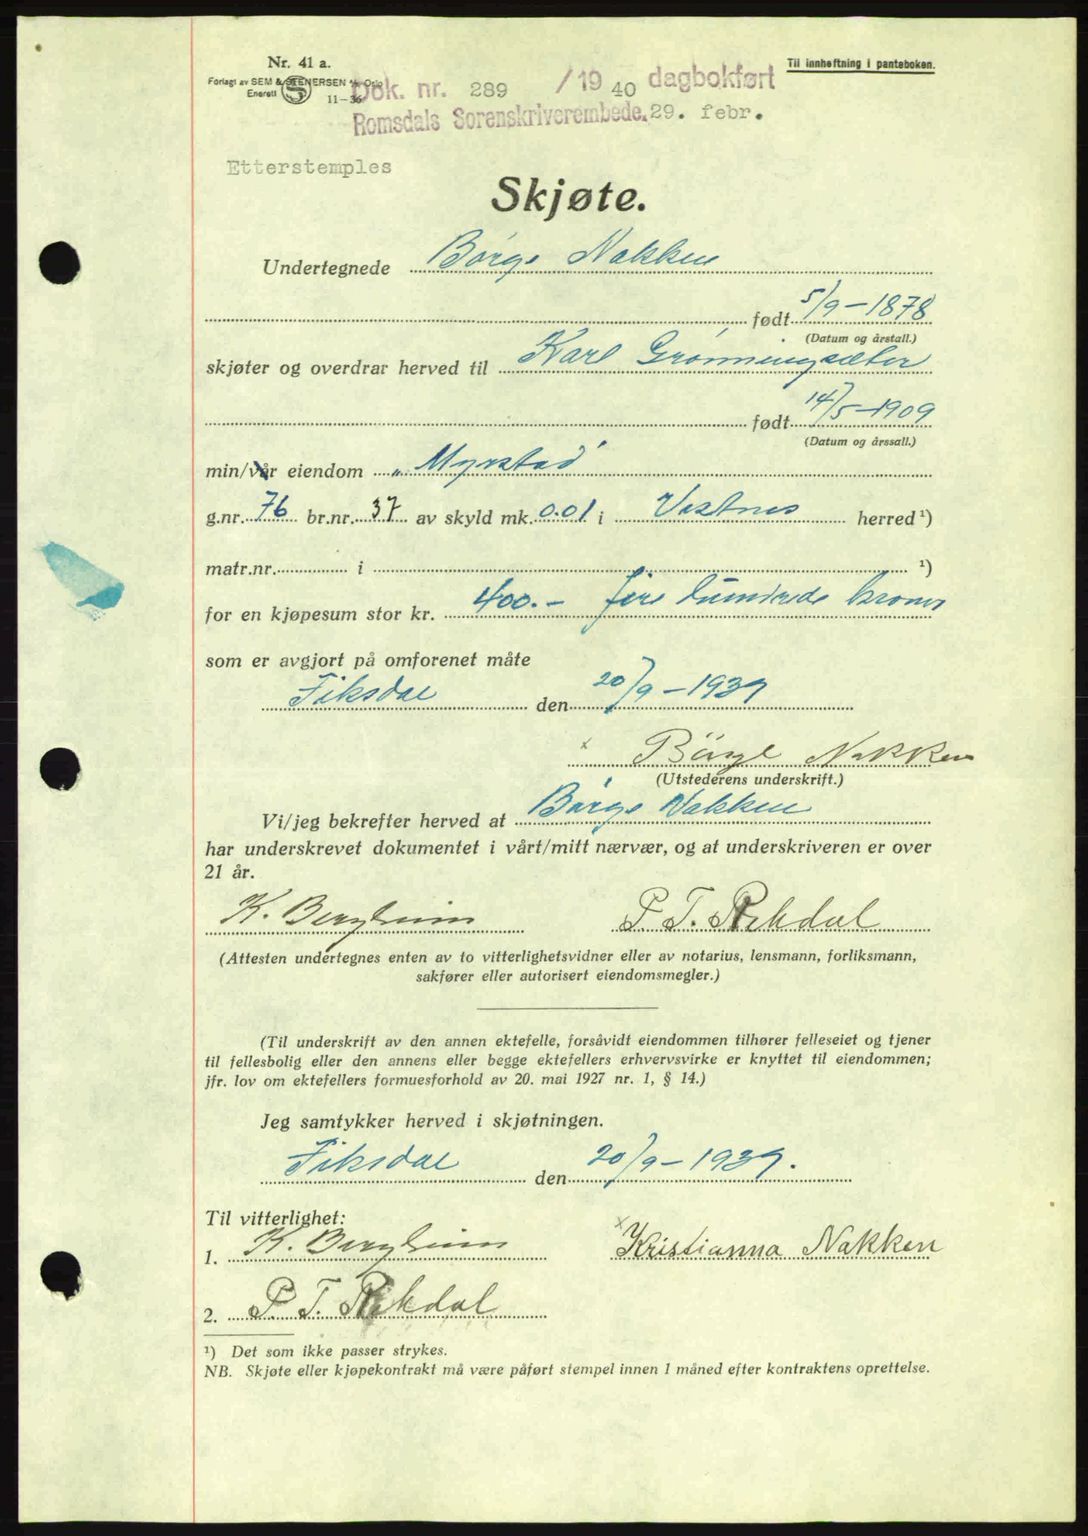 Nr. 41 a.
Til innheftning i panteboken.
Forlagt av SEM & STENERSEN A/S Oslo
Enerett
11-36
Dok. nr. 289 /19 40 dagbokført
Romsdals Sorenskriverembede. 29. febr.
Etterstemples
Skjøte.
Undertegnede Børge Nakken
født 5/9-1878
(Datum og årstall.)
skjøter og overdrar herved til Karl Grønningsæter
født 14/5-1909
(Datum og årssall.)
min/vår eiendom "Myrstad"
g.nr. 76 br.nr. 37 av skyld mk. 0.01 i Vestnes herred ¹)
matr.nr. i ¹)
for en kjøpesum stor kr. 400.- fire hundrede kroner
som er avgjort på omforenet måte
Fiksdal den 20/9-1939
x Børge Nakken
(Utstederens underskrift.)
Vi/jeg bekrefter herved at Børge Nakken
har underskrevet dokumentet i vårt/mitt nærvær, og at underskriveren er over
21 år.
K. Bergheim P. T. Rekdal
(Attesten undertegnes enten av to vitterlighetsvidner eller av notarius, lensmann, forliksmann,
sakfører eller autorisert eiendomsmegler.)
(Til underskrift av den annen ektefelle, forsåvidt eiendommen tilhører felleseiet og tjener
til fellesbolig eller den annens eller begge ektefellers erhvervsvirke er knyttet til eiendommen;
jfr. lov om ektefellers formuesforhold av 20. mai 1927 nr. 1, § 14.)
Jeg samtykker herved i skjøtningen.
Fiksdal den 20/9-1939.
Til vitterlighet:
1. K. Bergheim x Kristianna Nakken
2. P. T. Rekdal
¹) Det som ikke passer strykes.
NB. Skjøte eller kjøpekontrakt må være påført stempel innen 1 måned efter kontraktens oprettelse.